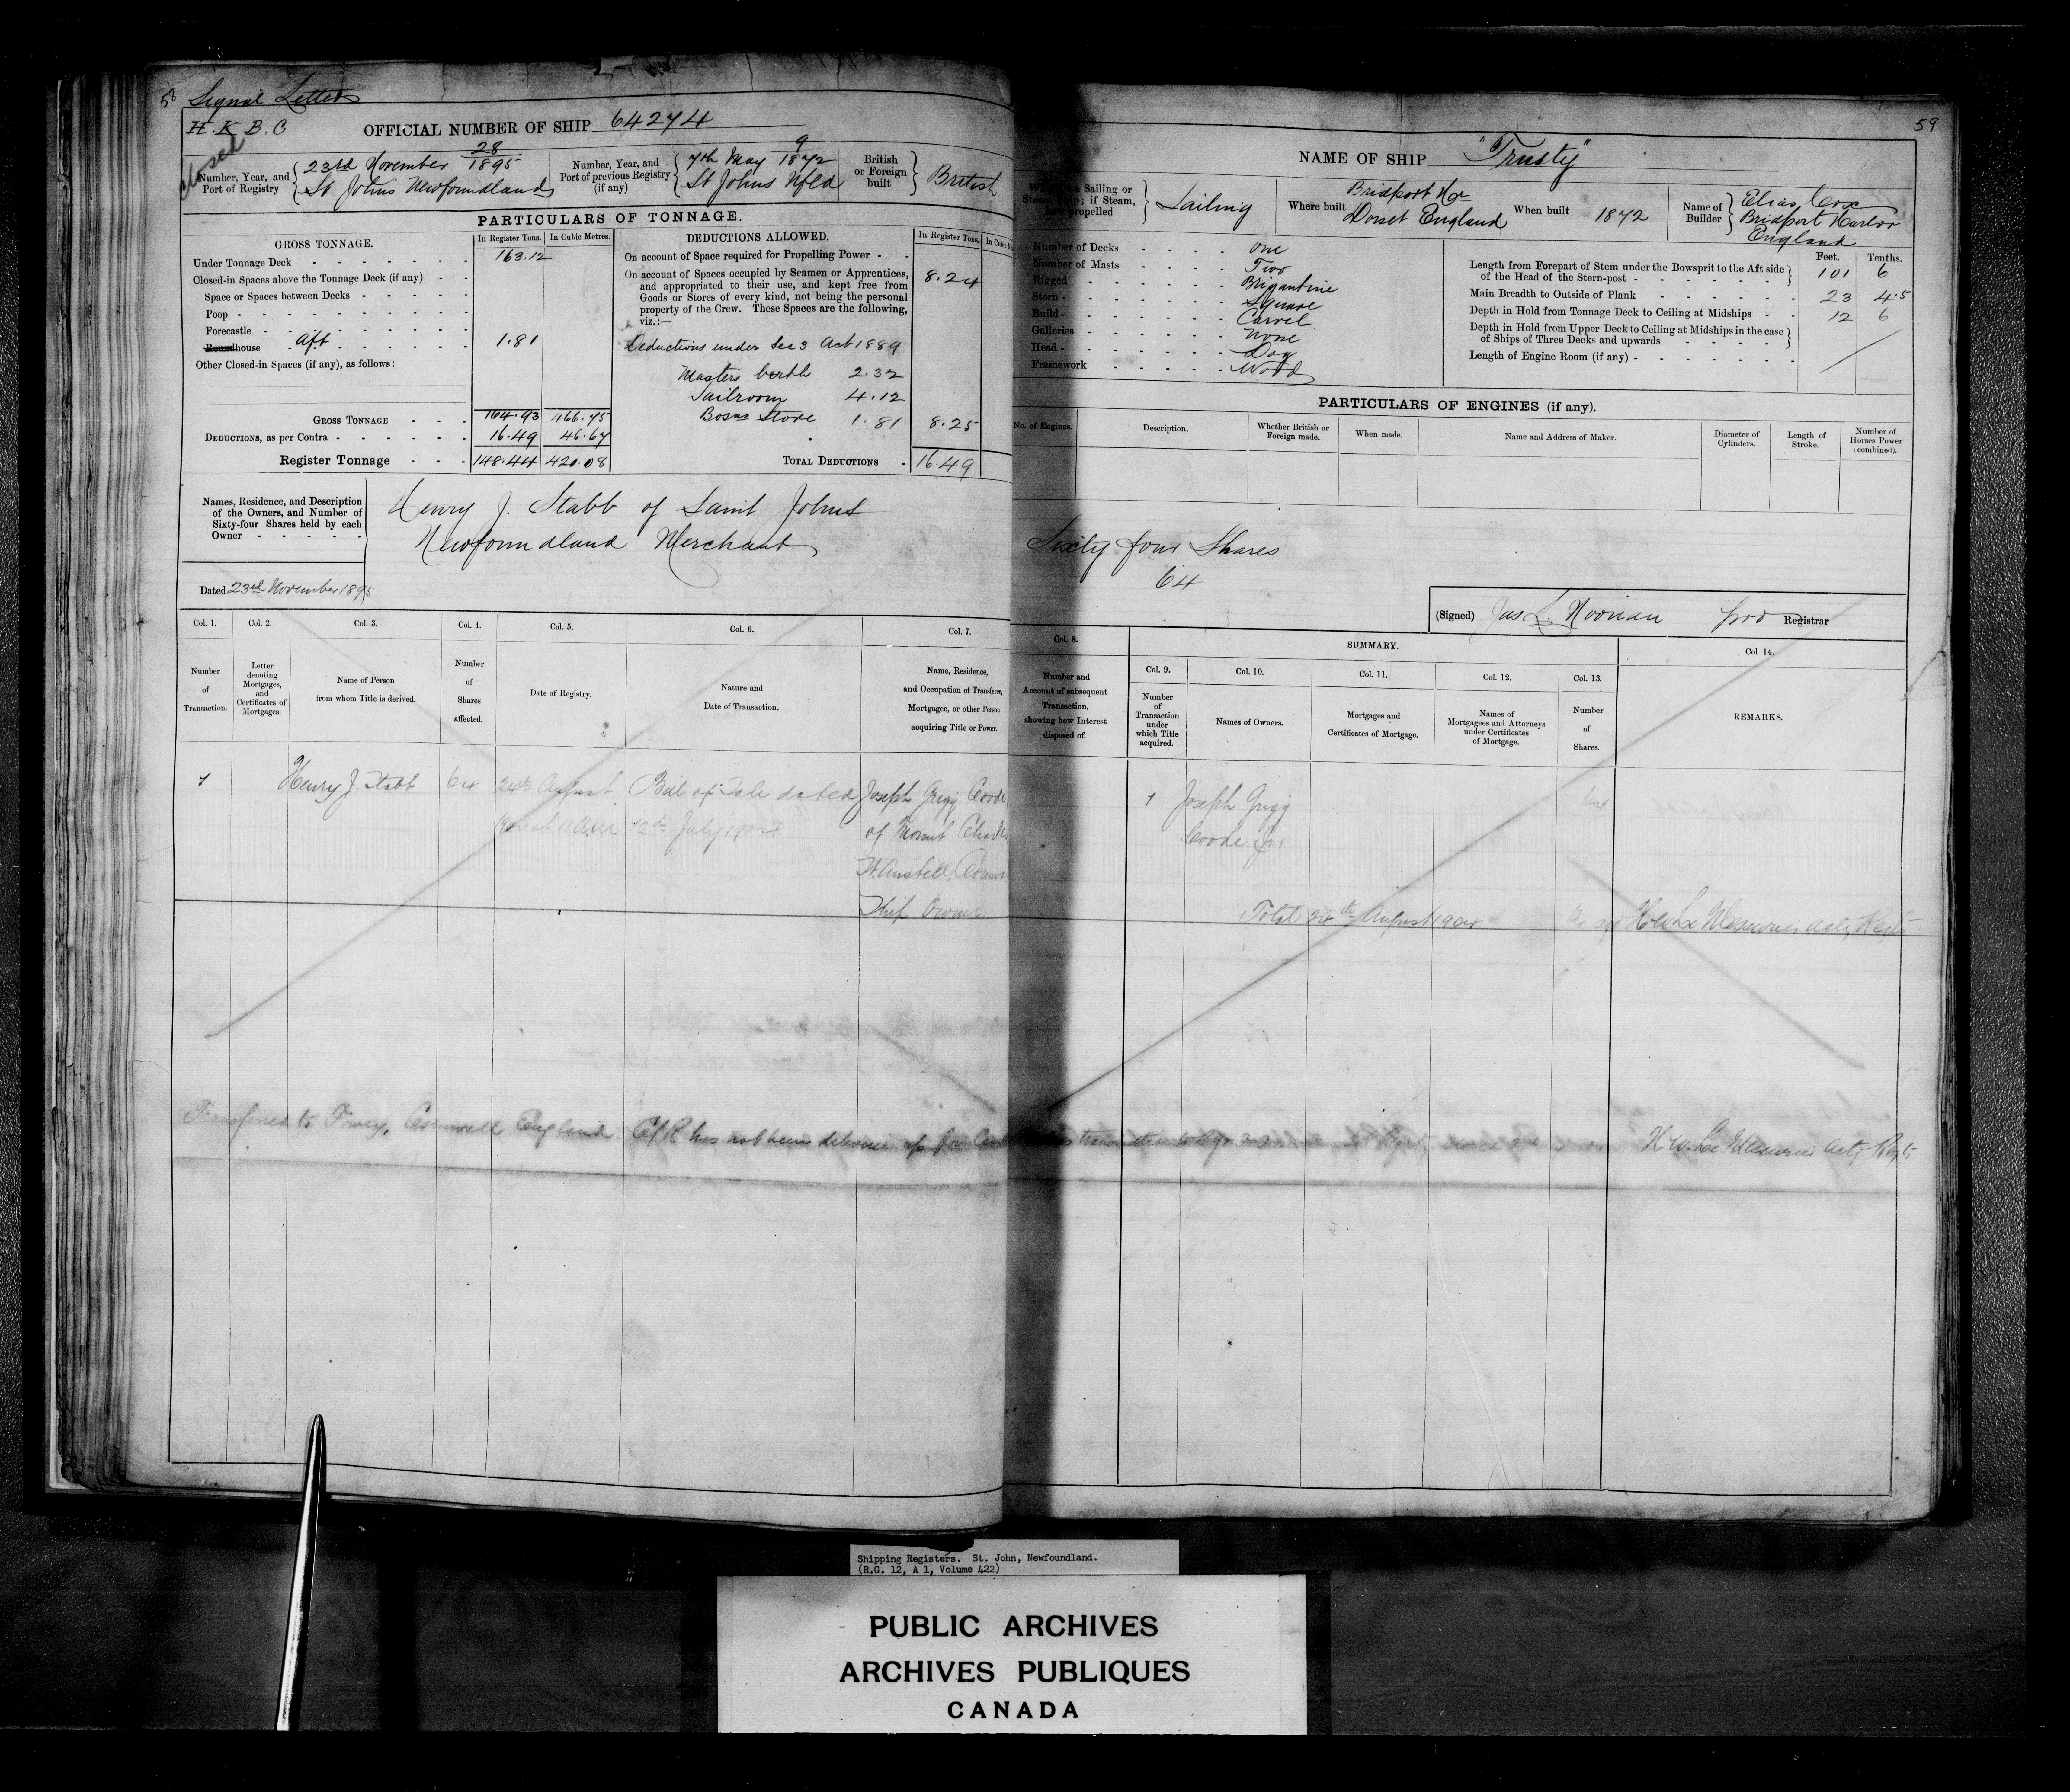 58
Signal Letters
H. K. B. C
Closed
OFFICIAL NUMBER OF SHIP 64274
Number, Year, and Port of Registry
28
23rd November 1895
St Johns Newfoundland
Number, Year, and Port of previous Registry (if any)
9
7th May 1872
St Johns Nfld
British or Foreign built
British
PARTICULARS OF TONNAGE.
GROSS TONNAGE.
In Register Tons.
In Cubic Metres.
Under Tonnage Deck 163.12
Closed-in Spaces above the Tonnage Deck (if any)
Space or Spaces between Decks
Poop
Forecastle
Roundhouse Aft 1.81
Other Closed-in Spaces (if any), as follows:
GROSS TONNAGE 164.93 466.75
DEDUCTIONS, as per Contra 16.49 46.67
Register Tonnage 148.44 420.08
DEDUCTIONS ALLOWED.
In Register Tons.
On account of Space required for Propelling Power
On account of Spaces occupied by Seamen or Apprentices, 8.24
and appropriated to their use, and kept free from
Goods or Stores of every kind, not being the personal
property of the Crew. These Spaces are the following,
viz.:—
Deductions under Sec 3 Act 1889
Masters berth 2.32
Sailroom 4.12
Bosns Store 1.81 8.25
TOTAL DEDUCTIONS 16.49
Names, Residence, and Description
of the Owners, and Number of
Sixty-four Shares held by each
Owner
Henry J. Stabb of Saint Johns
Newfoundland Merchant
Dated 23rd November 1895
Col. 1. Col. 2. Col. 3. Col. 4. Col. 5. Col. 6. Col. 7.
Number of Transaction.
Letter denoting Mortgages, and Certificates of Mortgages.
Name of Person from whom Title is derived.
Number of Shares affected.
Date of Registry.
Nature and Date of Transaction.
Name, Residence, and Occupation of Transferee, Mortgagee, or other Person acquiring Title or Power.
1 Henry J. Stabb 64 24th August Bill of Sale dated Joseph Grigg Coode
12th July 1904 of Mount Charles
St. Austell
Ship Owner
Transferred to Fowey, Cornwall England. C of R has not been
59
NAME OF SHIP "Trusty"
Whether a Sailing or Steam Ship; if Steam, how propelled
Sailing
Where built
Bridport Hr
Dorset England
When built 1872
Name of Builder
Elias Cox
Bridport Harbor
England
Number of Decks One
Number of Masts Two
Rigged Brigantine
Stern Square
Build Carvel
Galleries None
Head Dog
Framework Wood
Feet. Tenths.
Length from Forepart of Stem under the Bowsprit to the Aft side
of the Head of the Stern-post 101 6
Main Breadth to Outside of Plank 23 4.5
Depth in Hold from Tonnage Deck to Ceiling at Midships 12 6
Depth in Hold from Upper Deck to Ceiling at Midships in the case
of Ships of Three Decks and upwards
Length of Engine Room (if any)
PARTICULARS OF ENGINES (if any).
No. of Engines.
Description.
Whether British or Foreign made.
When made.
Name and Address of Maker.
Diameter of Cylinders.
Length of Stroke.
Number of Horses Power (combined).
Sixty four Shares
64
(Signed) Jas. L. Noonan Registrar
Col. 8.
Number and Account of subsequent Transaction, showing how Interest disposed of.
SUMMARY.
Col. 9. Col. 10. Col. 11. Col. 12. Col. 13. Col 14.
Number of Transaction under which Title acquired.
Names of Owners.
Mortgages and Certificates of Mortgage.
Names of Mortgagees and Attorneys under Certificates of Mortgage.
Number of Shares.
REMARKS.
1 Joseph Grigg 64
Coode Jr.
Total 24th August 1904 H. W. Le Messurier
H. W. Le Messurier
Shipping Registers. St. John, Newfoundland.
(R.G. 12, A 1, Volume 422)
PUBLIC ARCHIVES
ARCHIVES PUBLIQUES
CANADA